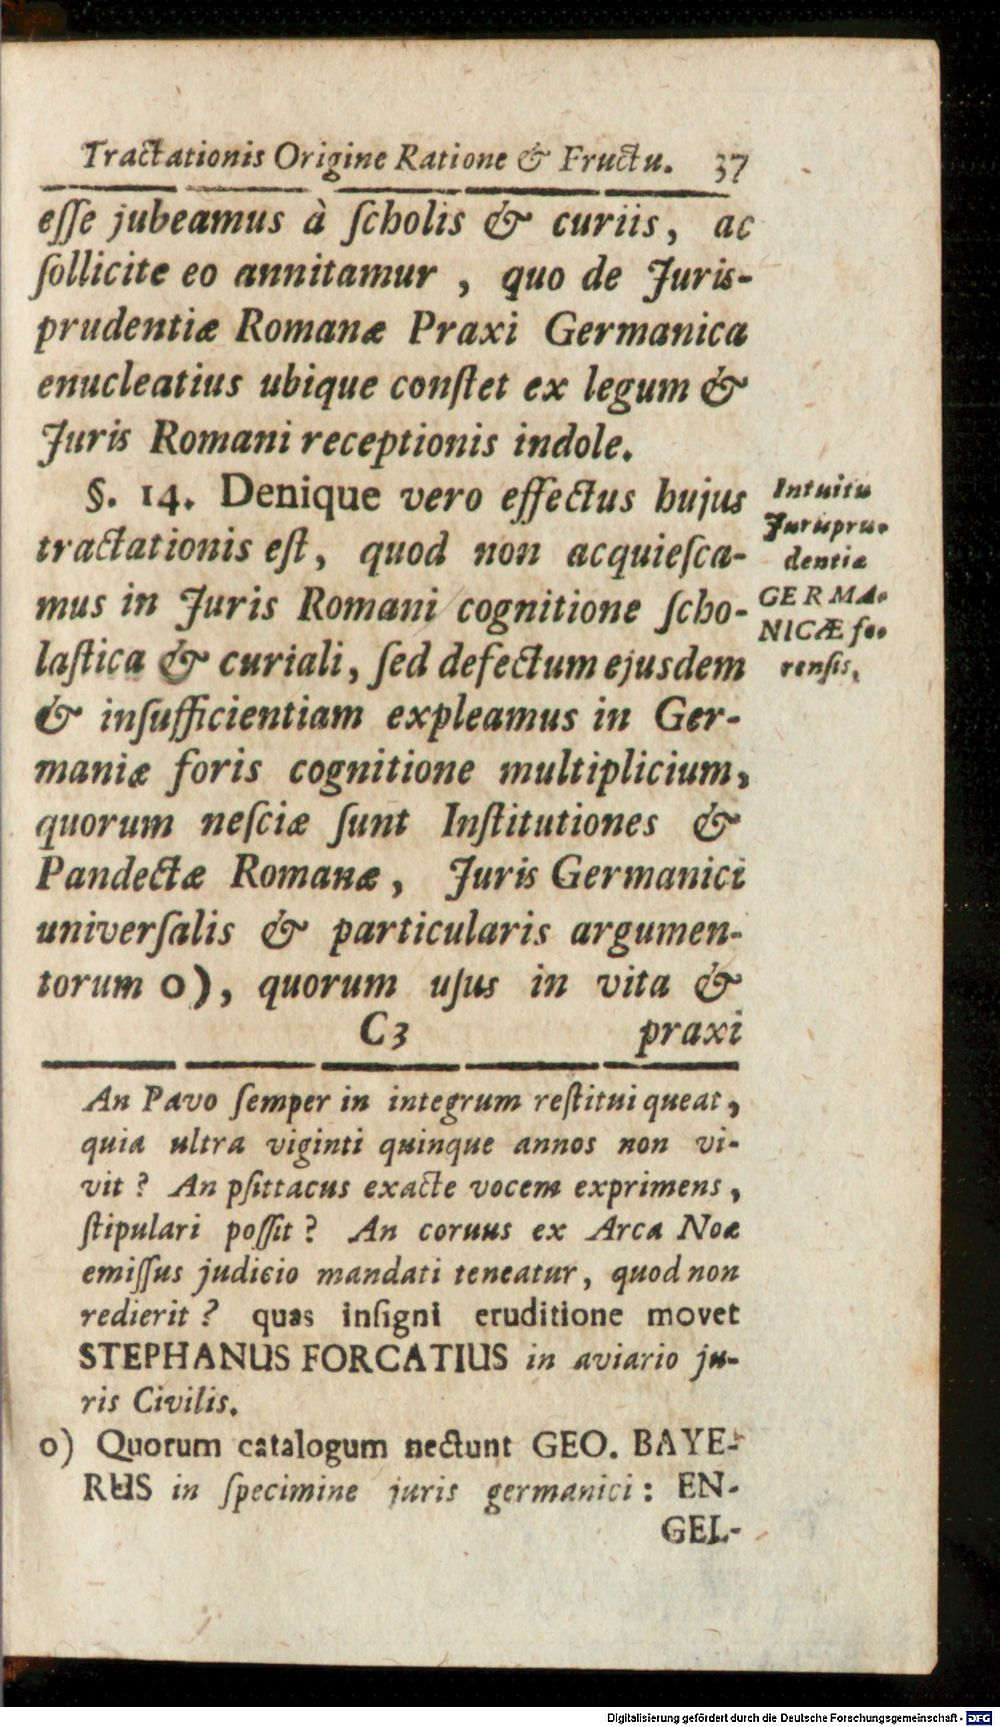 Tractationis Origine Ratione & Fructu. 37
eſſe jubeamus à ſcholis & curiis, ac
ſollicite eo annitamur , quo de Juris-
prudentiæ Romanæ Praxi Germanica
enucleatius ubique conſtet ex legum &
Juris Romani receptionis indole.
§. 14. Denique vero effectus hujus
tractationis eſt, quod non acquieſca-
mus in Juris Romani cognitione ſcho-
laſtica & curiali, ſed defectum ejusdem
& inſufficientiam expleamus in Ger-
maniæ foris cognitione multiplicium,
quorum neſciæ ſunt Inſtitutiones &
Pandectæ Romanæ, Juris Germanici
univerſalis & particularis argumen-
torum o), quorum uſus in vita &
C3 praxi
Intuitu
Jurispru-
dentiæ
GERMA-
NICÆ fo-
renſis.
An Pavo ſemper in integrum reſtitui queat,
quia ultra viginti quinque annos non vi-
vit ? An pſittacus exacte vocem exprimens,
ſtipulari poſſit ? An coruus ex Arca Noæ
emiſſus judicio mandati teneatur, quod non
redierit ? quas inſigni eruditione movet
STEPHANUS FORCATIUS in aviario ju-
ris Civilis.
o) Quorum catalogum nectunt GEO. BAYE-
RUS in ſpecimine juris germanici : EN-
GEL-
Digitalisierung gefördert durch die Deutsche Forschungsgemeinschaft - DFG